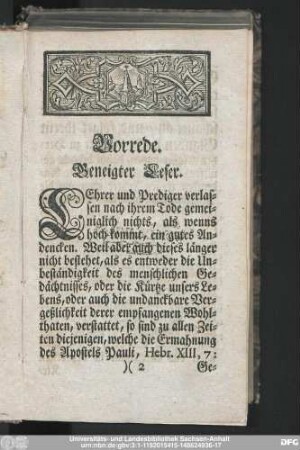 Vorrede.
Geneigter Leser.
LEhrer und Prediger verlas-
sen nach ihrem Tode gemei-
niglich nichts, als wenns
hoch kommt, ein gutes An-
dencken. Weil aber auch dieses länger
nicht bestehet, als es entweder die Un-
beständigkeit des menschlichen Ge-
dächtnisses, oder die Kürtze unsers Le-
bens, oder auch die undanckbare Ver-
geßlichkeit derer empfangenen Wohl-
thaten, verstattet, so sind zu allen Zei-
ten diejenigen, welche die Ermahnung
des Apostels Pauli, Hebr. XIII, 7:
)( 2 Ge-
Universitäts- und Landesbibliothek Sachsen-Anhalt
DFG